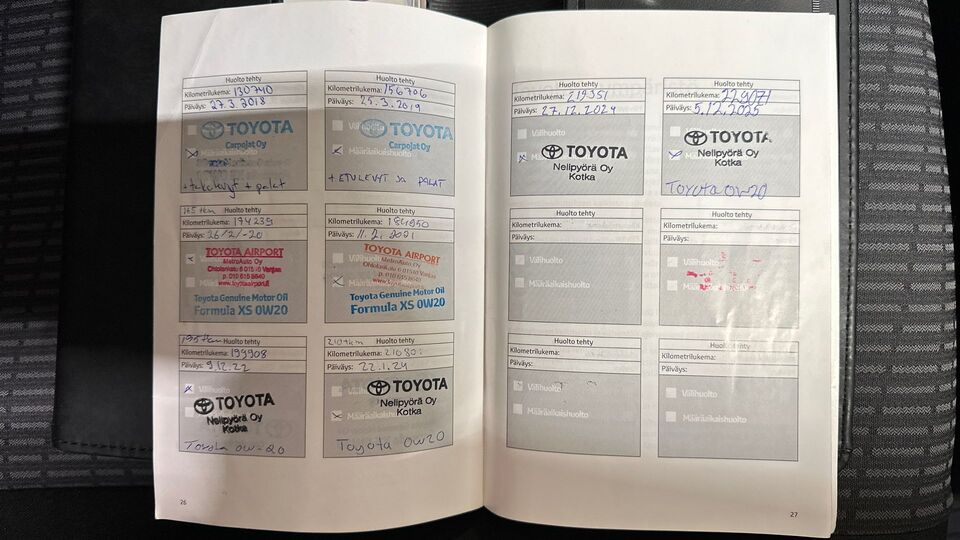 Huolto tehty
Kilometrilukema: 130740
Päiväys: 27.3 2018
TOYOTA
Carpojat Oy
Määräaikaishuolto
+ takalevyt + palat
Huolto tehty
Kilometrilukema: 156706
Päiväys: 25.3.2019
Välihuolto
TOYOTA
Carpojat Oy
Määräaikaishuolto
+ ETULEVYT JA PALAT
165 tkm Huolto tehty
Kilometrilukema: 174239
Päiväys: 26/2/-20
TOYOTA AIRPORT
MetroAuto Oy
Ohtolankatu 6 01510 Vantaa
p. 010 615 8640
www.toyotaairport.fi
Toyota Genuine Motor Oil
Formula XS 0W20
Huolto tehty
Kilometrilukema:
Päiväys: 11.2.2021
TOYOTA AIRPORT
MetroAuto Oy
Ohtolankatu 6 01510 Vantaa
p. 010 615 8640
www.toyotaairport.fi
Toyota Genuine Motor Oil
Formula XS 0W20
195 tkm Huolto tehty
Kilometrilukema: 199908
Päiväys: 9.12.22
Välihuolto
TOYOTA
Nelipyörä Oy
Kotka
Toyota 0W-20
210 tkm Huolto tehty
Kilometrilukema:
Päiväys: 22.1.24
Välihuolto
TOYOTA
Nelipyörä Oy
Kotka
Määräaikaishuolto
Toyota 0W20
26
Huolto tehty
Kilometrilukema: 219351
Päiväys: 27.12.2024
Välihuolto
TOYOTA
Nelipyörä Oy
Kotka
Huolto tehty
Kilometrilukema: 229071
Päiväys: 5.12.2025
TOYOTA
Nelipyörä Oy
Kotka
Toyota 0W20
Huolto tehty
Kilometrilukema:
Päiväys:
Välihuolto
Määräaikaishuolto
Huolto tehty
Kilometrilukema:
Päiväys:
Huolto tehty
Kilometrilukema:
Päiväys:
Välihuolto
Määräaikaishuolto
Huolto tehty
Kilometrilukema:
Päiväys:
Välihuolto
Määräaikaishuolto
27